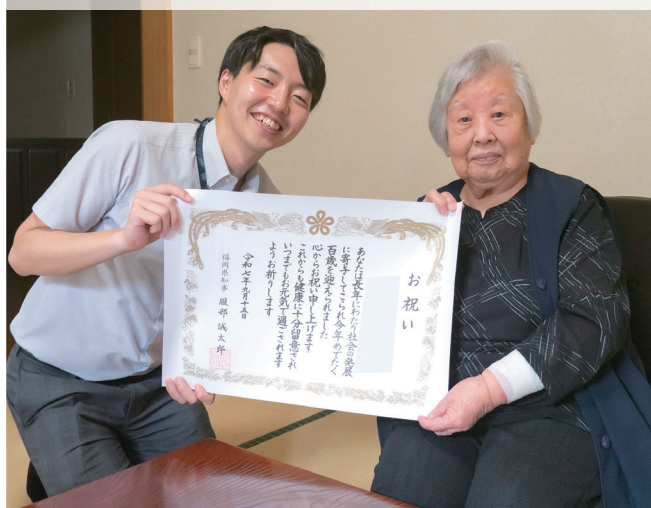 お祝い
あなたは長年にわたり社会の発展
に寄与してこられ今年めでたく
百歳を迎えられました
心からお祝い申し上げます
これからも健康に十分留意され
いつまでもお元気で過ごされます
ようお祈りします
令和七年九月十五日
福岡県知事 服部 誠太郎